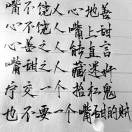 嘴不饶人心地善
心不饶人嘴上甜
心善之人敢直言
嘴甜之人藏迷奸
宁交一个抬杠鬼
也不要一个嘴甜的贼